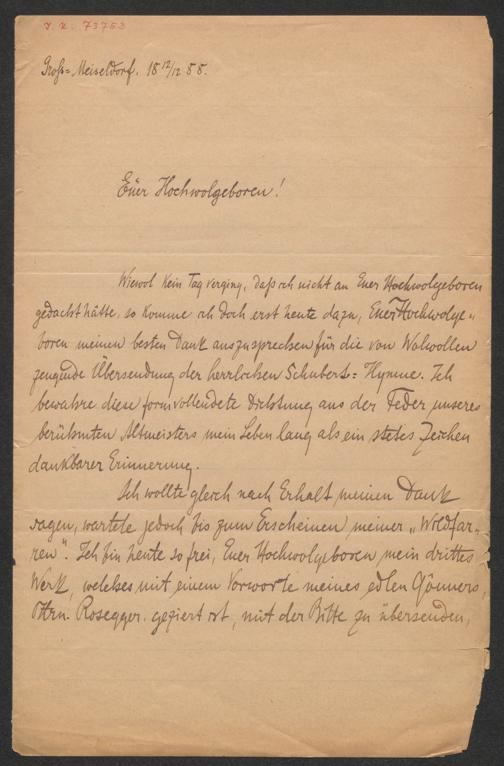 I. N. 73752
Groß-Meiseldorf. 18 12/12 88.
Euer Hochwolgeboren!
Wiewol kein Tag verging, daß ich nicht an Euer Hochwolgeboren
gedacht hätte, so komme ich doch erst heute dazu, Euer Hochwolge„
boren meinen besten Dank auszusprechen für die von Wolwollen
zeugende Übersendung der herrlichen Schubert-Hymne. Ich
bewahre diese formvollendete Dichtung aus der Feder unseres
berühmten Altmeisters mein Leben lang als ein stetes Zeichen
dankbarer Erinnerung.
Ich wollte gleich nach Erhalt meinen Dank
sagen, wartete jedoch bis zum Erscheinen meiner „Wildfar-
ren". Ich bin heute so frei, Euer Hochwolgeboren mein drittes
Werk, welches mit einem Vorworte meines edlen Gönners,
Hrn. Rosegger. geziert ist, mit der Bitte zu übersenden,